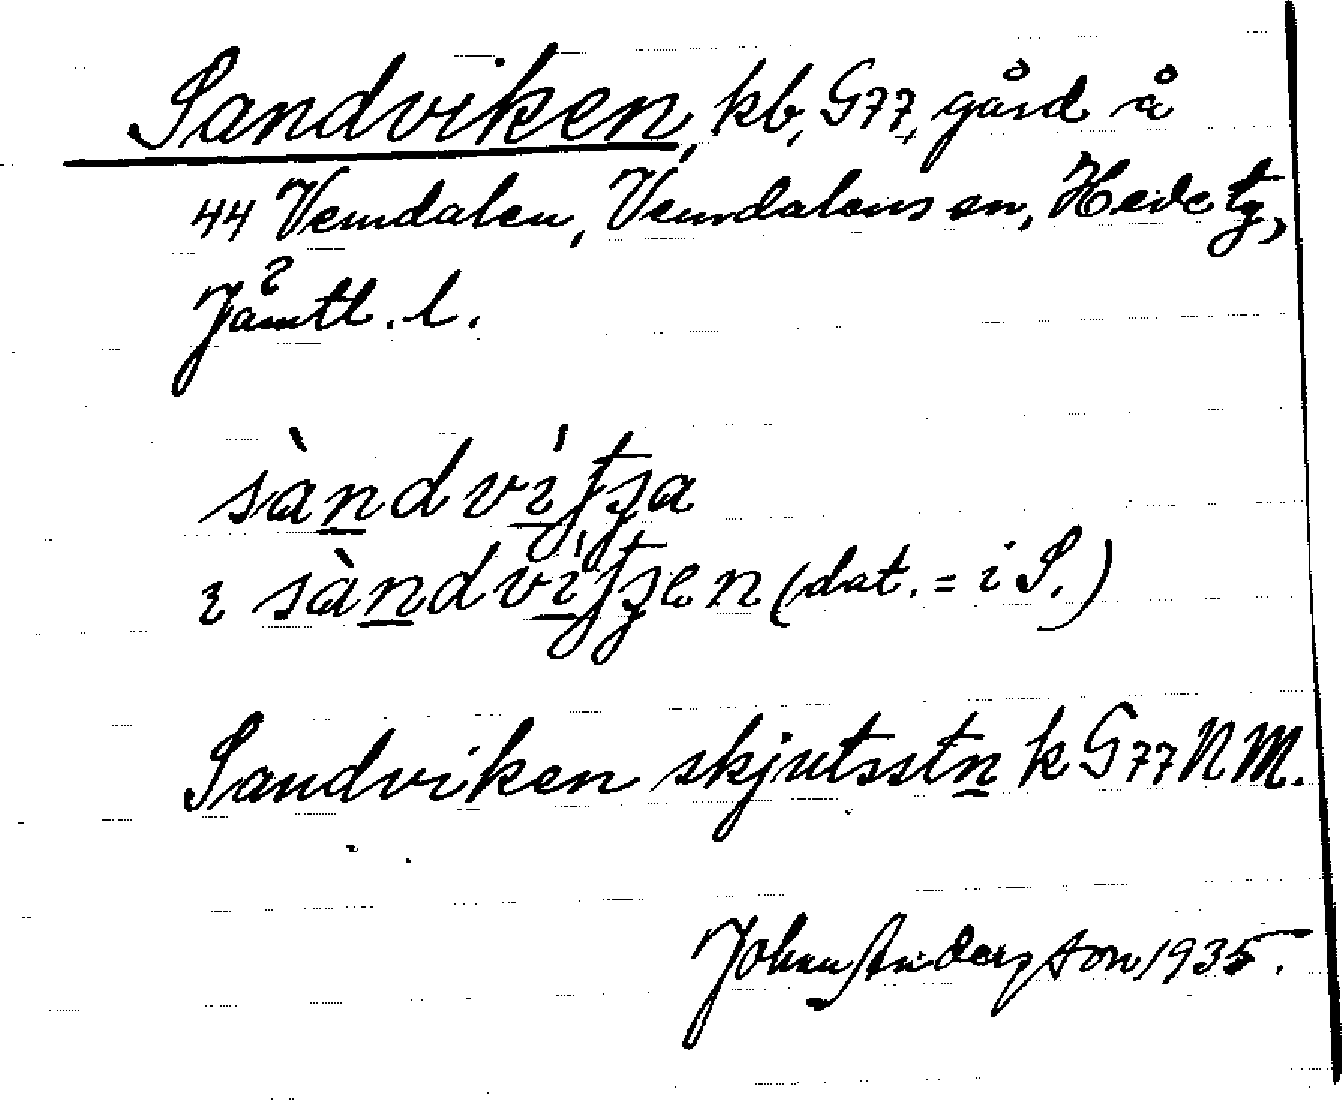 Sandviken, kb, G77, gård å
44 Vemdalen, Vemdalens sn, Hede tg,
Jämtl. l.
sàndvi̍tʃa
ɩ sàndvi̍tʃen (dat. = i S.)
Sandviken skjutsstn k G77 NM.
Johan Anderzson 1935.